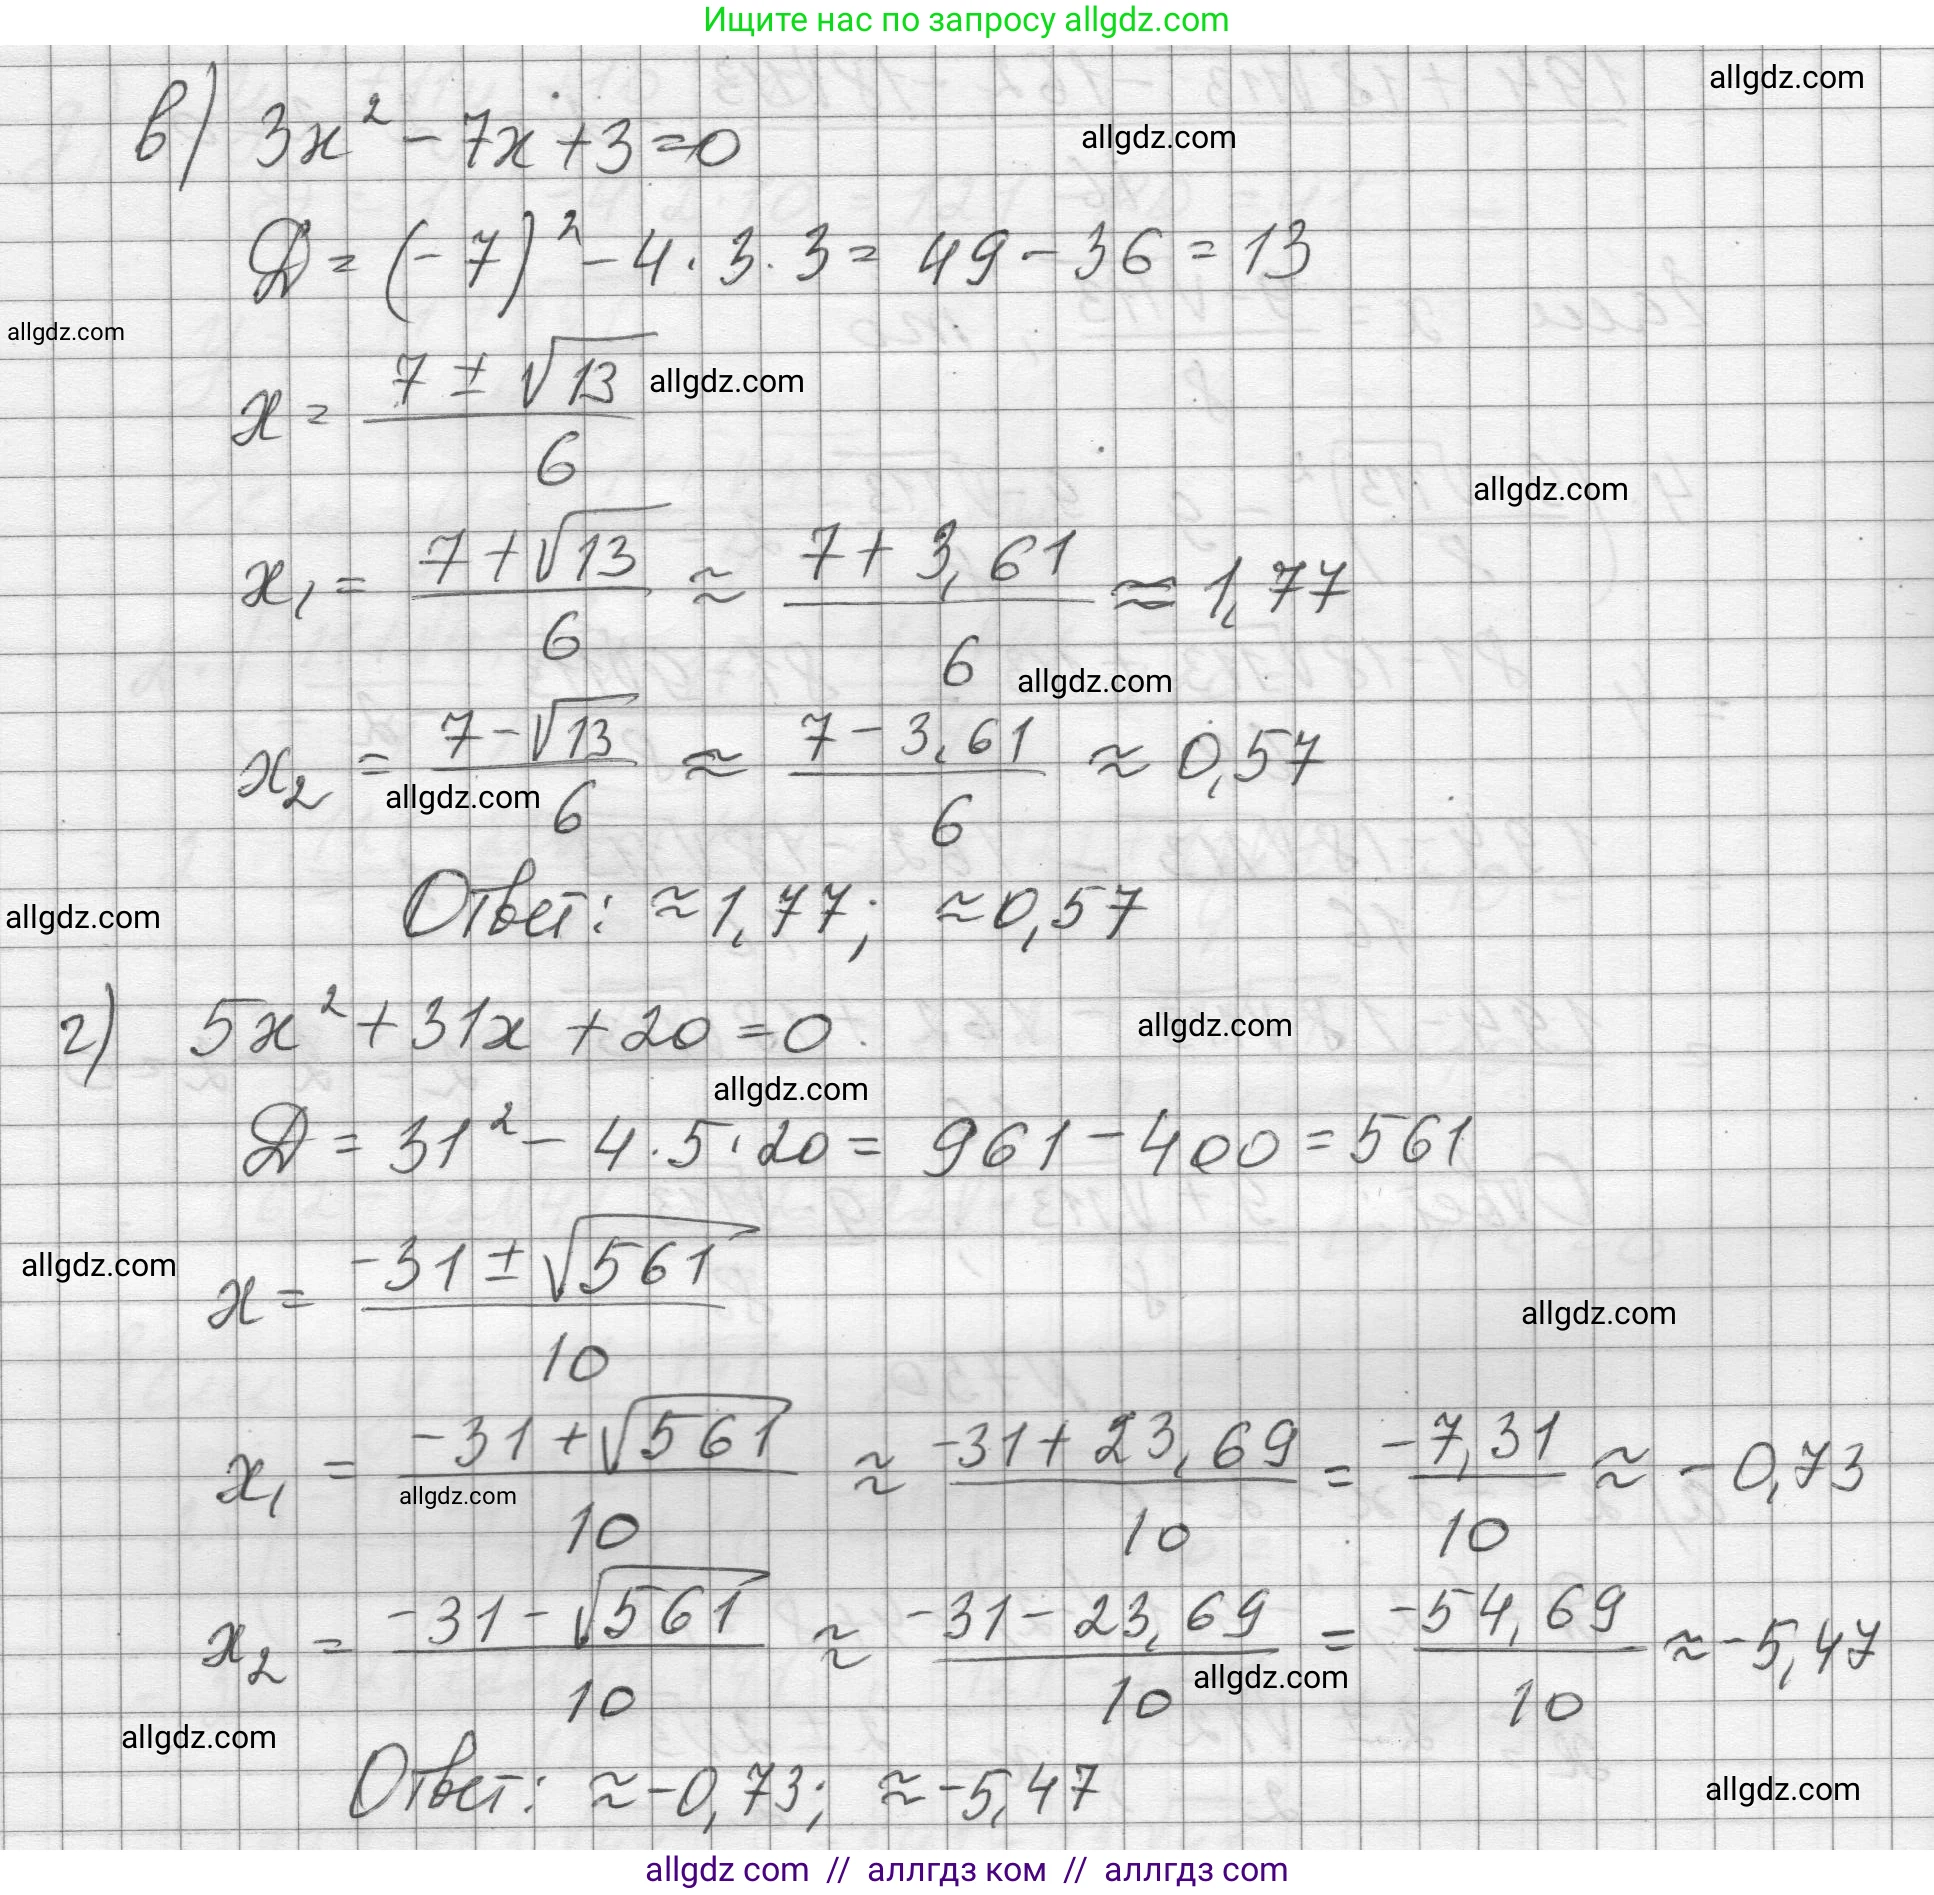 Ищите нас по запросу allgdz.com
allgdz.com
в) 3x² - 7x + 3 = 0
allgdz.com
Д = (-7)² - 4 · 3 · 3 = 49 - 36 = 13
allgdz.com
x = (7 ± √13)/6
allgdz.com
allgdz.com
x₁ = (7 + √13)/6 ≈ (7 + 3,61)/6 ≈ 1,77
allgdz.com
x₂ = (7 - √13)/6 ≈ (7 - 3,61)/6 ≈ 0,57
allgdz.com
Ответ: ≈ 1,77; ≈ 0,57
allgdz.com
г) 5x² + 31x + 20 = 0
allgdz.com
allgdz.com
Д = 31² - 4 · 5 · 20 = 961 - 400 = 561
allgdz.com
x = (-31 ± √561)/10
allgdz.com
x₁ = (-31 + √561)/10 ≈ (-31 + 23,69)/10 = (-7,31)/10 ≈ -0,73
allgdz.com
x₂ = (-31 - √561)/10 ≈ (-31 - 23,69)/10 = (-54,69)/10 ≈ -5,47
allgdz.com
allgdz.com
Ответ: ≈ -0,73; ≈ -5,47
allgdz.com
allgdz com // аллгдз ком // аллгдз com